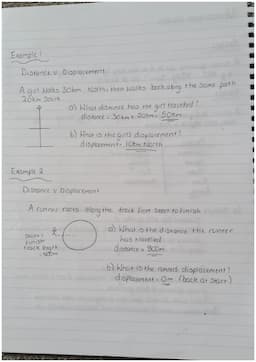 Example 1
Distance v Displacement
A girl walks 30km North, then walks back along the same path
20km South
a) What distance has the girl travelled?
distance = 30km + 20km = 50km
b) What is the girl's displacement?
displacement = 10km North
Example 2
Distance v Displacement
A runner races along the track from start to finish
a) What is the distance the runner
has travelled
distance =
start /
finish
track length
b) What is the runners displacement?
displacement = 0m (back at start)